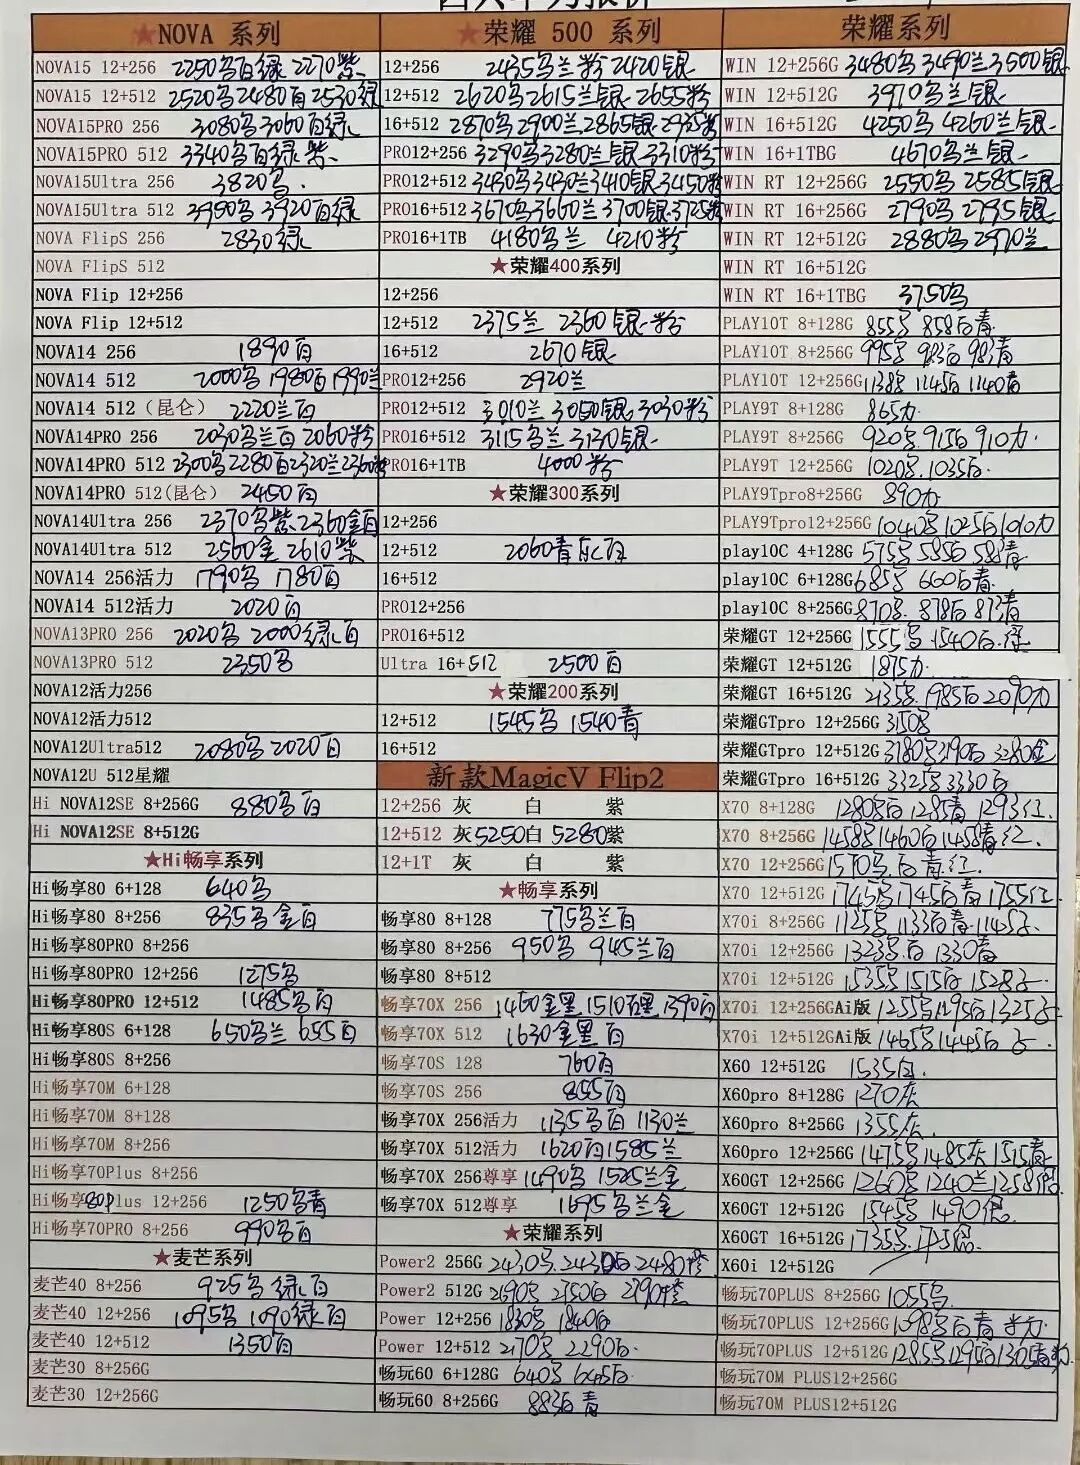 ★NOVA 系列
NOVA15 12+256 2250乌白绿 2270紫
NOVA15 12+512 2520乌2480白2530绿
NOVA15PRO 256 3080乌3060白绿
NOVA15PRO 512 3340乌白绿紫
NOVA15Ultra 256 3820乌
NOVA15Ultra 512 3950乌 3920白绿
NOVA FlipS 256 2830绿
NOVA FlipS 512
NOVA Flip 12+256
NOVA Flip 12+512
NOVA14 256 1890白
NOVA14 512 2000乌 1980白 1990兰
NOVA14 512（昆仑） 2220兰白
NOVA14PRO 256 2030乌兰白 2060粉
NOVA14PRO 512 2300乌2280白2320兰2360粉
NOVA14PRO 512(昆仑) 2450白
NOVA14Ultra 256 2370乌紫 2360金白
NOVA14Ultra 512 2560金 2610紫
NOVA14 256活力 1790乌 1780白
NOVA14 512活力 2020白
NOVA13PRO 256 2020乌 2000绿白
NOVA13PRO 512 2350乌
NOVA12活力256
NOVA12活力512
NOVA12Ultra512 2080乌 2020白
NOVA12U 512星耀
Hi NOVA12SE 8+256G 880乌白
Hi NOVA12SE 8+512G
★Hi畅享系列
Hi畅享80 6+128 640乌
Hi畅享80 8+256 835乌金白
Hi畅享80PRO 8+256
Hi畅享80PRO 12+256 1275乌
Hi畅享80PRO 12+512 1485乌白
Hi畅享80S 6+128 650乌兰 655白
Hi畅享80S 8+256
Hi畅享70M 6+128
Hi畅享70M 8+128
Hi畅享70M 8+256
Hi畅享70Plus 8+256
Hi畅享80Plus 12+256 1250乌青
Hi畅享70PRO 8+256 990乌白
★麦芒系列
麦芒40 8+256 925乌绿白
麦芒40 12+256 1095乌 1090绿白
麦芒40 12+512 1350白
麦芒30 8+256G
麦芒30 12+256G
★荣耀 500 系列
12+256 2435乌兰粉 2420银
12+512 2620乌2615兰银 2655粉
16+512 2870乌2900兰2865银
PRO12+256 3290乌3280兰银3310粉
PRO12+512 3430乌3430兰3410银3450粉
PRO16+512 3670乌3660兰3700银3725粉
PRO16+1TB 4180乌兰 4210粉
★荣耀400系列
12+256
12+512 2375兰 2360银粉
16+512 2670银
PRO12+256 2920兰
PRO12+512 3010兰 3050银 3030粉
PRO16+512 3115乌兰3130银
PRO16+1TB 4000粉
★荣耀300系列
12+256
12+512 2060青
16+512
PRO12+256
PRO16+512
Ultra 16+512 2500白
★荣耀200系列
12+512 1545乌 1540青
16+512
新款MagicV Flip2
12+256 灰 白 紫
12+512 灰5250白 5280紫
12+1T 灰 白 紫
★畅享系列
畅享80 8+128 775乌兰白
畅享80 8+256 950乌 945兰白
畅享80 8+512
畅享70X 256 1460金黑 1390白
畅享70X 512 1630金黑白
畅享70S 128 760白
畅享70S 256 855白
畅享70X 256活力 1135乌白 1130兰
畅享70X 512活力 1620白1585兰
畅享70X 256尊享 1490乌 1525兰金
畅享70X 512尊享 1695乌兰金
★荣耀系列
Power2 256G 2430乌 2430白 2480橙
Power2 512G 2690乌 2750白 2790橙
Power 12+256 1830乌 1840白
Power 12+512 2170乌 2290白
畅玩60 6+128G 640乌 645白
畅玩60 8+256G 883白青
荣耀系列
WIN 12+256G 3480乌 3490兰3500银
WIN 12+512G 3970乌兰银
WIN 16+512G 4250乌 4260兰银
WIN 16+1TBG 4670乌兰银
WIN RT 12+256G 2550乌 2585银
WIN RT 16+256G 2790乌 2795银
WIN RT 12+512G 2880乌2970兰
WIN RT 16+512G
WIN RT 16+1TBG 3750乌
PLAY10T 8+128G 855乌 858白青
PLAY10T 8+256G 995乌 983白 983青
PLAY10T 12+256G 1138乌 1145白 1140青
PLAY9T 8+128G 865力
PLAY9T 8+256G 920乌 915白 910力
PLAY9T 12+256G 1020乌 1035白
PLAY9Tpro8+256G 890力
PLAY9Tpro12+256G 1040乌 1025白1010力
play10C 4+128G 575乌 585白 588青
play10C 6+128G 685乌 660白青
play10C 8+256G 870乌 878白 873青
荣耀GT 12+256G 1555乌 1540白绿
荣耀GT 12+512G 1875力
荣耀GT 16+512G 2135乌 1985白2090力
荣耀GTpro 12+256G 3150乌
荣耀GTpro 12+512G 3180乌3190白 3280金
荣耀GTpro 16+512G 3325乌3330白
X70 8+128G 1280乌白 1285青 1293红
X70 8+256G 1458乌1460白1458青红
X70 12+256G 1570乌白青红
X70 12+512G 1745乌1745白青1755红
X70i 8+256G 1125乌 1133白青
X70i 12+256G 1323乌白 1330青
X70i 12+512G 1535乌1515白 1528子
X70i 12+256GAi版 1255乌1295白1325子
X70i 12+512GAi版 1465乌1445白子
X60 12+512G 1535白
X60pro 8+128G 1270灰
X60pro 8+256G 1355灰
X60pro 12+256G 1475乌1485灰1515青
X60GT 12+256G 1260乌 1240兰1258银
X60GT 12+512G 1545乌 1490银
X60GT 16+512G 1735乌
X60i 12+512G
畅玩70PLUS 8+256G 1055乌
畅玩70PLUS 12+256G 1098乌白青
畅玩70PLUS 12+512G 1285乌1295白1305青
畅玩70M PLUS12+256G
畅玩70M PLUS12+512G